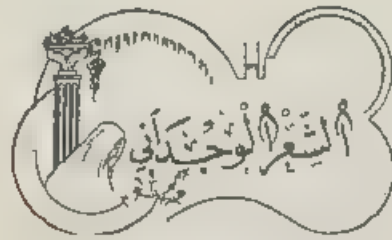 أَلشِّعْرُ أَلْوِجْدَانِي